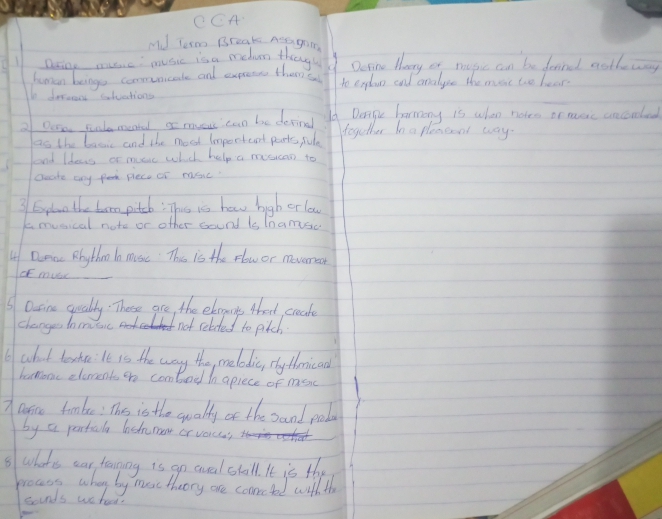 CCA
Mid Term Break Assignm
1 Define music: music is a medium through
human beings communicate and express them
in different situations
2 Define fundamental of music can be defined
as the basic and the most important parts, rule
and ideas of music which help a musican to
create any piece of music.
3 Explain the term pitch: This is how high or low
a musical note or other sound is in a music
4 Define Rhythm in music: This is the flow or movement
of music
5 Define quality: These are the elements that create
changes in music not related to pitch
6 what texture: It is the way the melodic, rhythmic and
harmonic elements are combined in a piece of music
7 Define timbre: This is the quality of the sound produ
by a particula instrument or voices,
8 What is ear training is an aural skall. It is the
process where by music theory are connected with the
sounds we hear.
9 Define theory of music can be defined as the way
to explain and analyse the music we hear.
10 Define harmony is when notes of music are
together in a pleasant way.